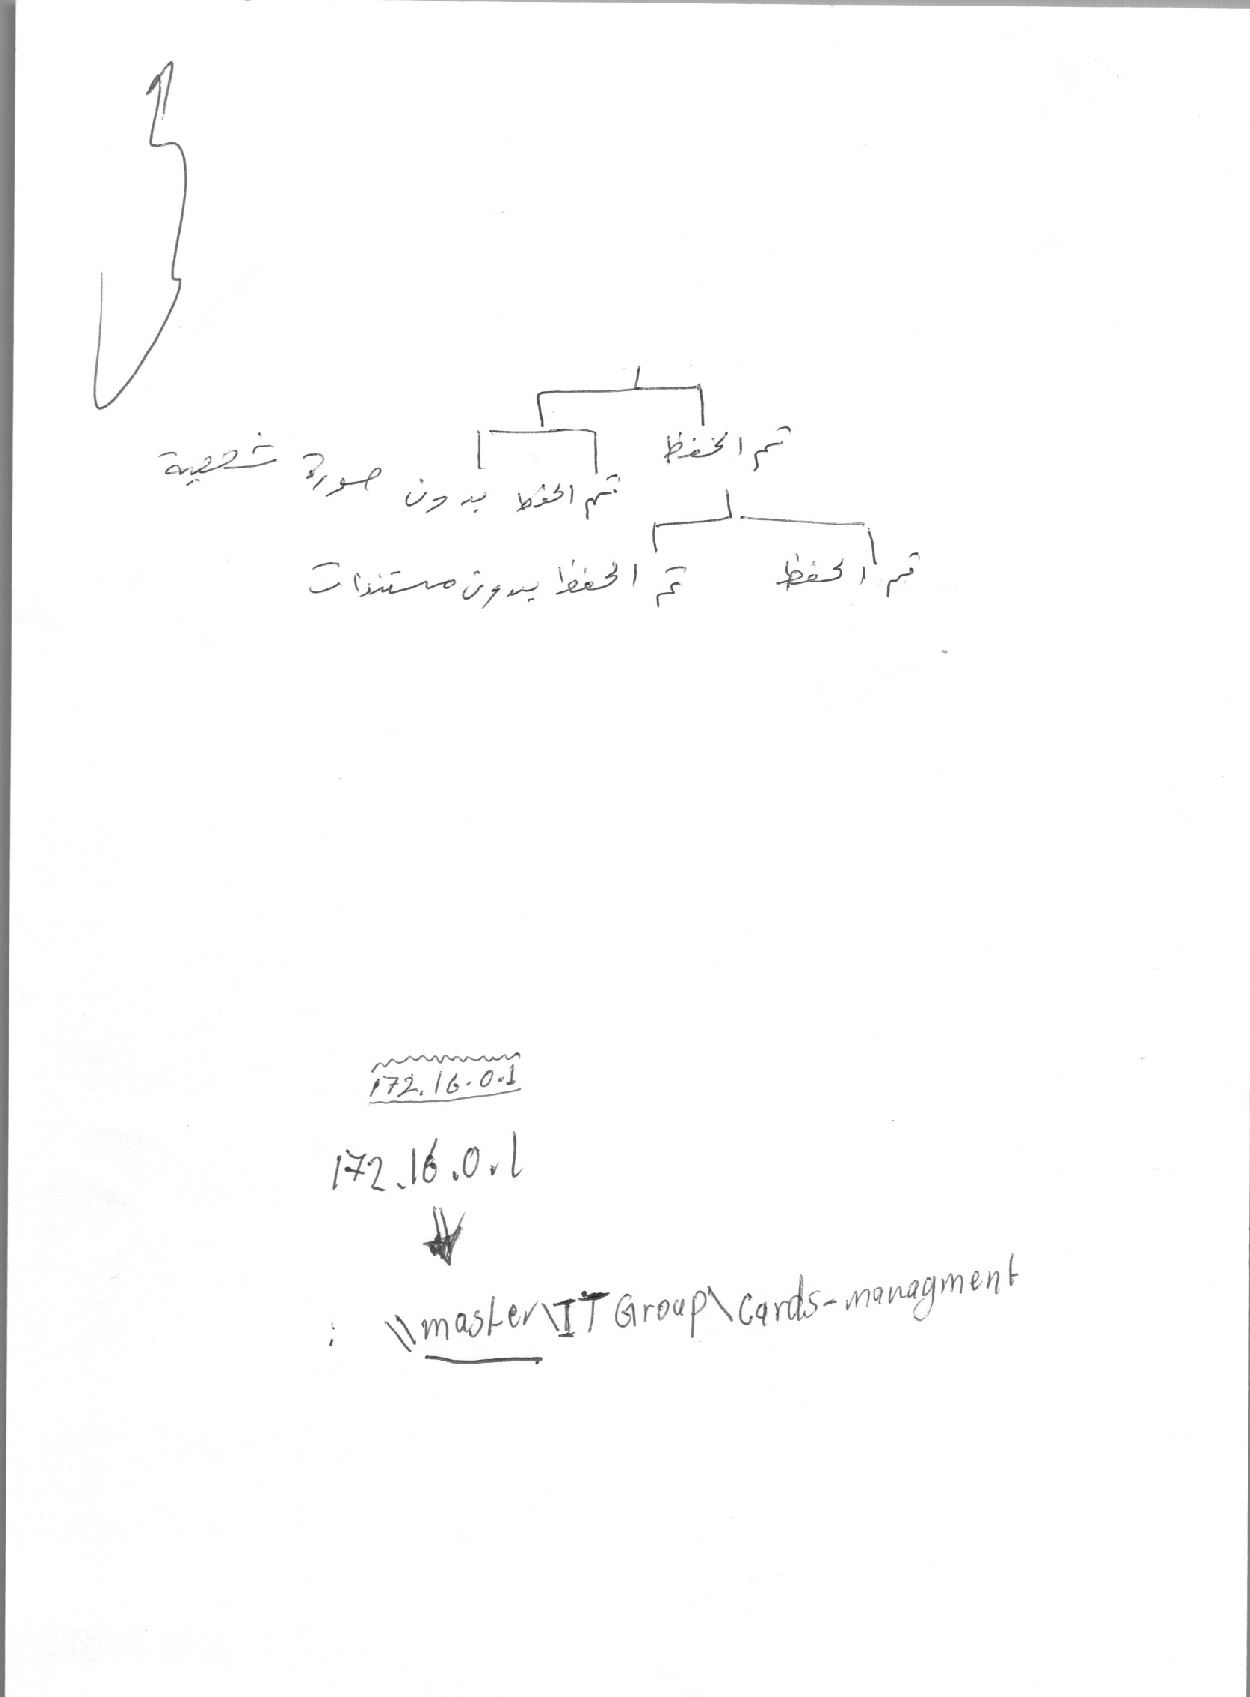 تم الحفظ
تم الحفظ بدون صورة شخصية
تم الحفظ
تم الحفظ بدون مستندات
172.16.0.1
172.16.0.1
\\master\ITGroup\Cards-managment